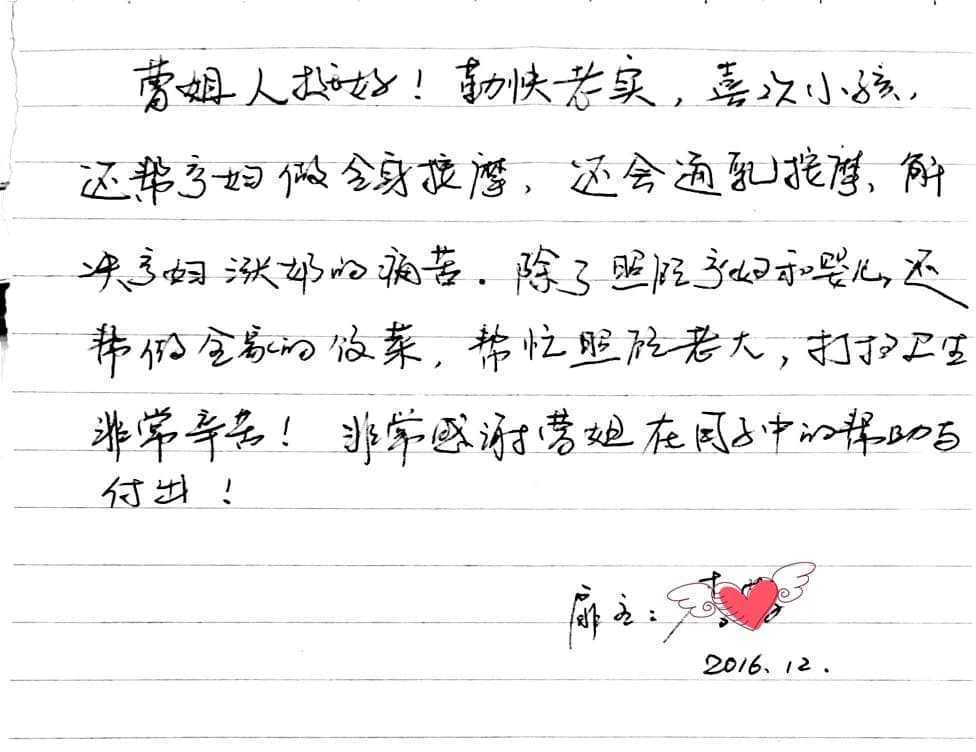 曹姐人挺好！勤快老实，喜欢小孩，
还帮产妇做全身按摩，还会通乳按摩、解
决产妇涨奶的痛苦．除了照顾产妇和婴儿，还
帮做全家的饭菜，帮忙照顾老大，打扫卫生
非常辛苦！非常感谢曹姐在月子中的帮助与
付出！
雇主：
2016.12.